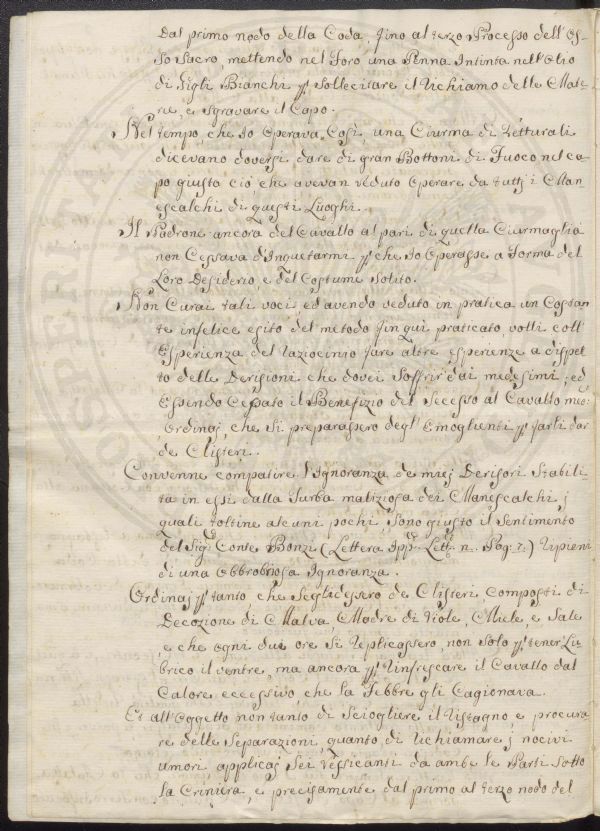 Dal primo nodo della Coda, fino al terzo Processo dell'Os-
so Sacro, mettendo nel Foro una Penna Intinta nell'Olio
di Gigli Bianchi p. sollecitare il Richiamo delle Mate-
rie, e sgravare il Capo.
Nel tempo, che Io Operava Così, una Ciurma di Vetturali
dicevano doversi dare di gran Bottoni di Fuoco nel ca-
po giusta ciò che avevan veduto Operare da tutti i Man-
escalchi di questi Luoghi.
Il Padrone ancora del Cavallo al pari di quella Ciurmaglia
non Cessava d'Inquetarmi p. che Io Operasse a forma del
Loro Desiderio, e del Costume Solito.
Non Curai tali voci, ed avendo veduto in pratica un Costan-
te infelice esito del metodo fin qui praticato, volli coll'
Esperienza del Raziocinio fare altre esperienze a dispet-
to delle Derisioni che dovei soffrir dai medesimi; ed
Essendo Cessato il Benefizio del Secesso al Cavallo med.
Ordinai, che si preparassero degl'Emoglienti p. farli dar
de Clisteri.
Convenne compatire l'Ignoranza de miej Derisori Stabili-
ta in essi dalla turba maliziosa dei Manescalchi;
quali toltine alcuni pochi, sono giusto il Sentimento
del Sig. Conte Bonzi (Lettera Ipp. Lett. n. Pag. ) Ripieni
di una Obbrobriosa Ignoranza.
Ordinaj p. tanto che Seglidessero de Clisteri composti di
Decozione di Malva, Madre di Viole, Miele, e Sale
e che ogni due ore si Replicassero, non solo p. tener Lu-
brico il ventre, ma ancora p. Rinfrescare il Cavallo dal
Calore eccessivo, che la Febbre gli Cagionava.
Et all'Oggetto non tanto di Sciogliere il Ristagno, e procura-
re delle Separazioni, quanto di Richiamare i nocivi
umori applicai Sei Vessicanti da ambe le Parti sotto
la Criniera, e precisamente dal primo al terzo nodo del